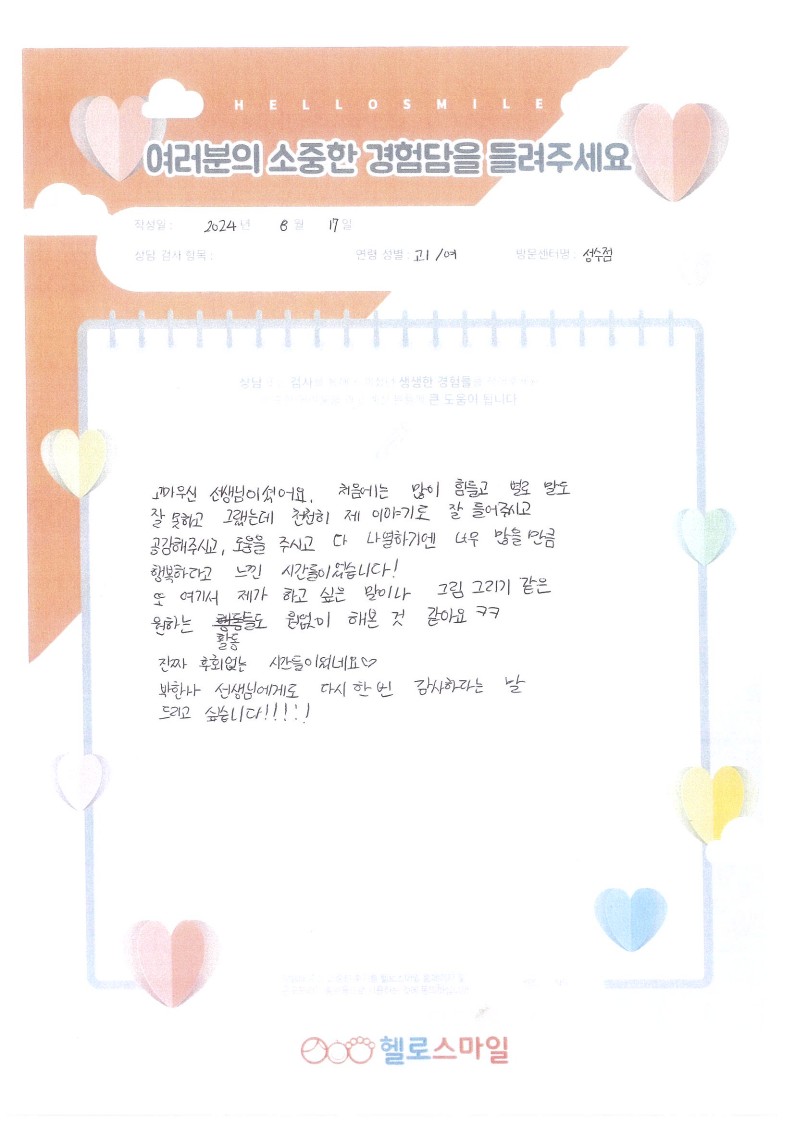 HELLOSMILE
여러분의 소중한 경험담을 들려주세요
작성일 : 2024 년 8 월 17 일
상담 검사 항목 : 연령 성별 : 고1 / 여 방문센터명 : 성수점
상담 검사 생생한 경험을
큰 도움이 됩니다
고마우신 선생님이셨어요, 처음에는 많이 힘들고 별로 말도
잘 못하고 그랬는데 천천히 제 이야기도 잘 들어주시고
공감해주시고, 도움을 주시고 다 나열하기엔 너무 많을 만큼
행복하다고 느낀 시간들이었습니다!
또 여기서 제가 하고 싶은 말이나 그림 그리기 같은
원하는 행동들도 원없이 해본 것 같아요 ㅋㅋ
활동
진짜 후회없는 시간들이었네요♡
선생님에게도 다시 한 번 감사하다는 말
드리고 싶습니다!!!!!
헬로스마일